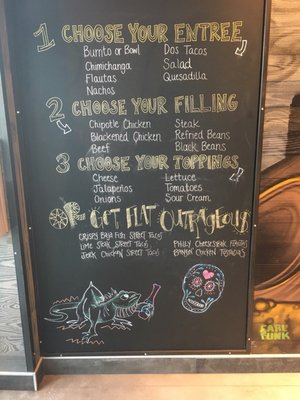 1 CHOOSE YOUR ENTREE
Burrito or Bowl Dos Tacos
Chimichanga Salad
Flautas Quesadilla
Nachos
2 CHOOSE YOUR FILLING
Chipotle Chicken Steak
Blackened Chicken Refried Beans
Beef Black Beans
3 CHOOSE YOUR TOPPINGS
Cheese Lettuce
Jalapeños Tomatoes
Onions Sour Cream
OR GET FLAT OUTRAGEOUS
CRISPY BAJA FISH STREET TACOS
LIME STEAK STREET TACOS PHILLY CHEESESTEAK FLAUTAS
JERK CHICKEN STREET TACOS CHICKEN
FUNK